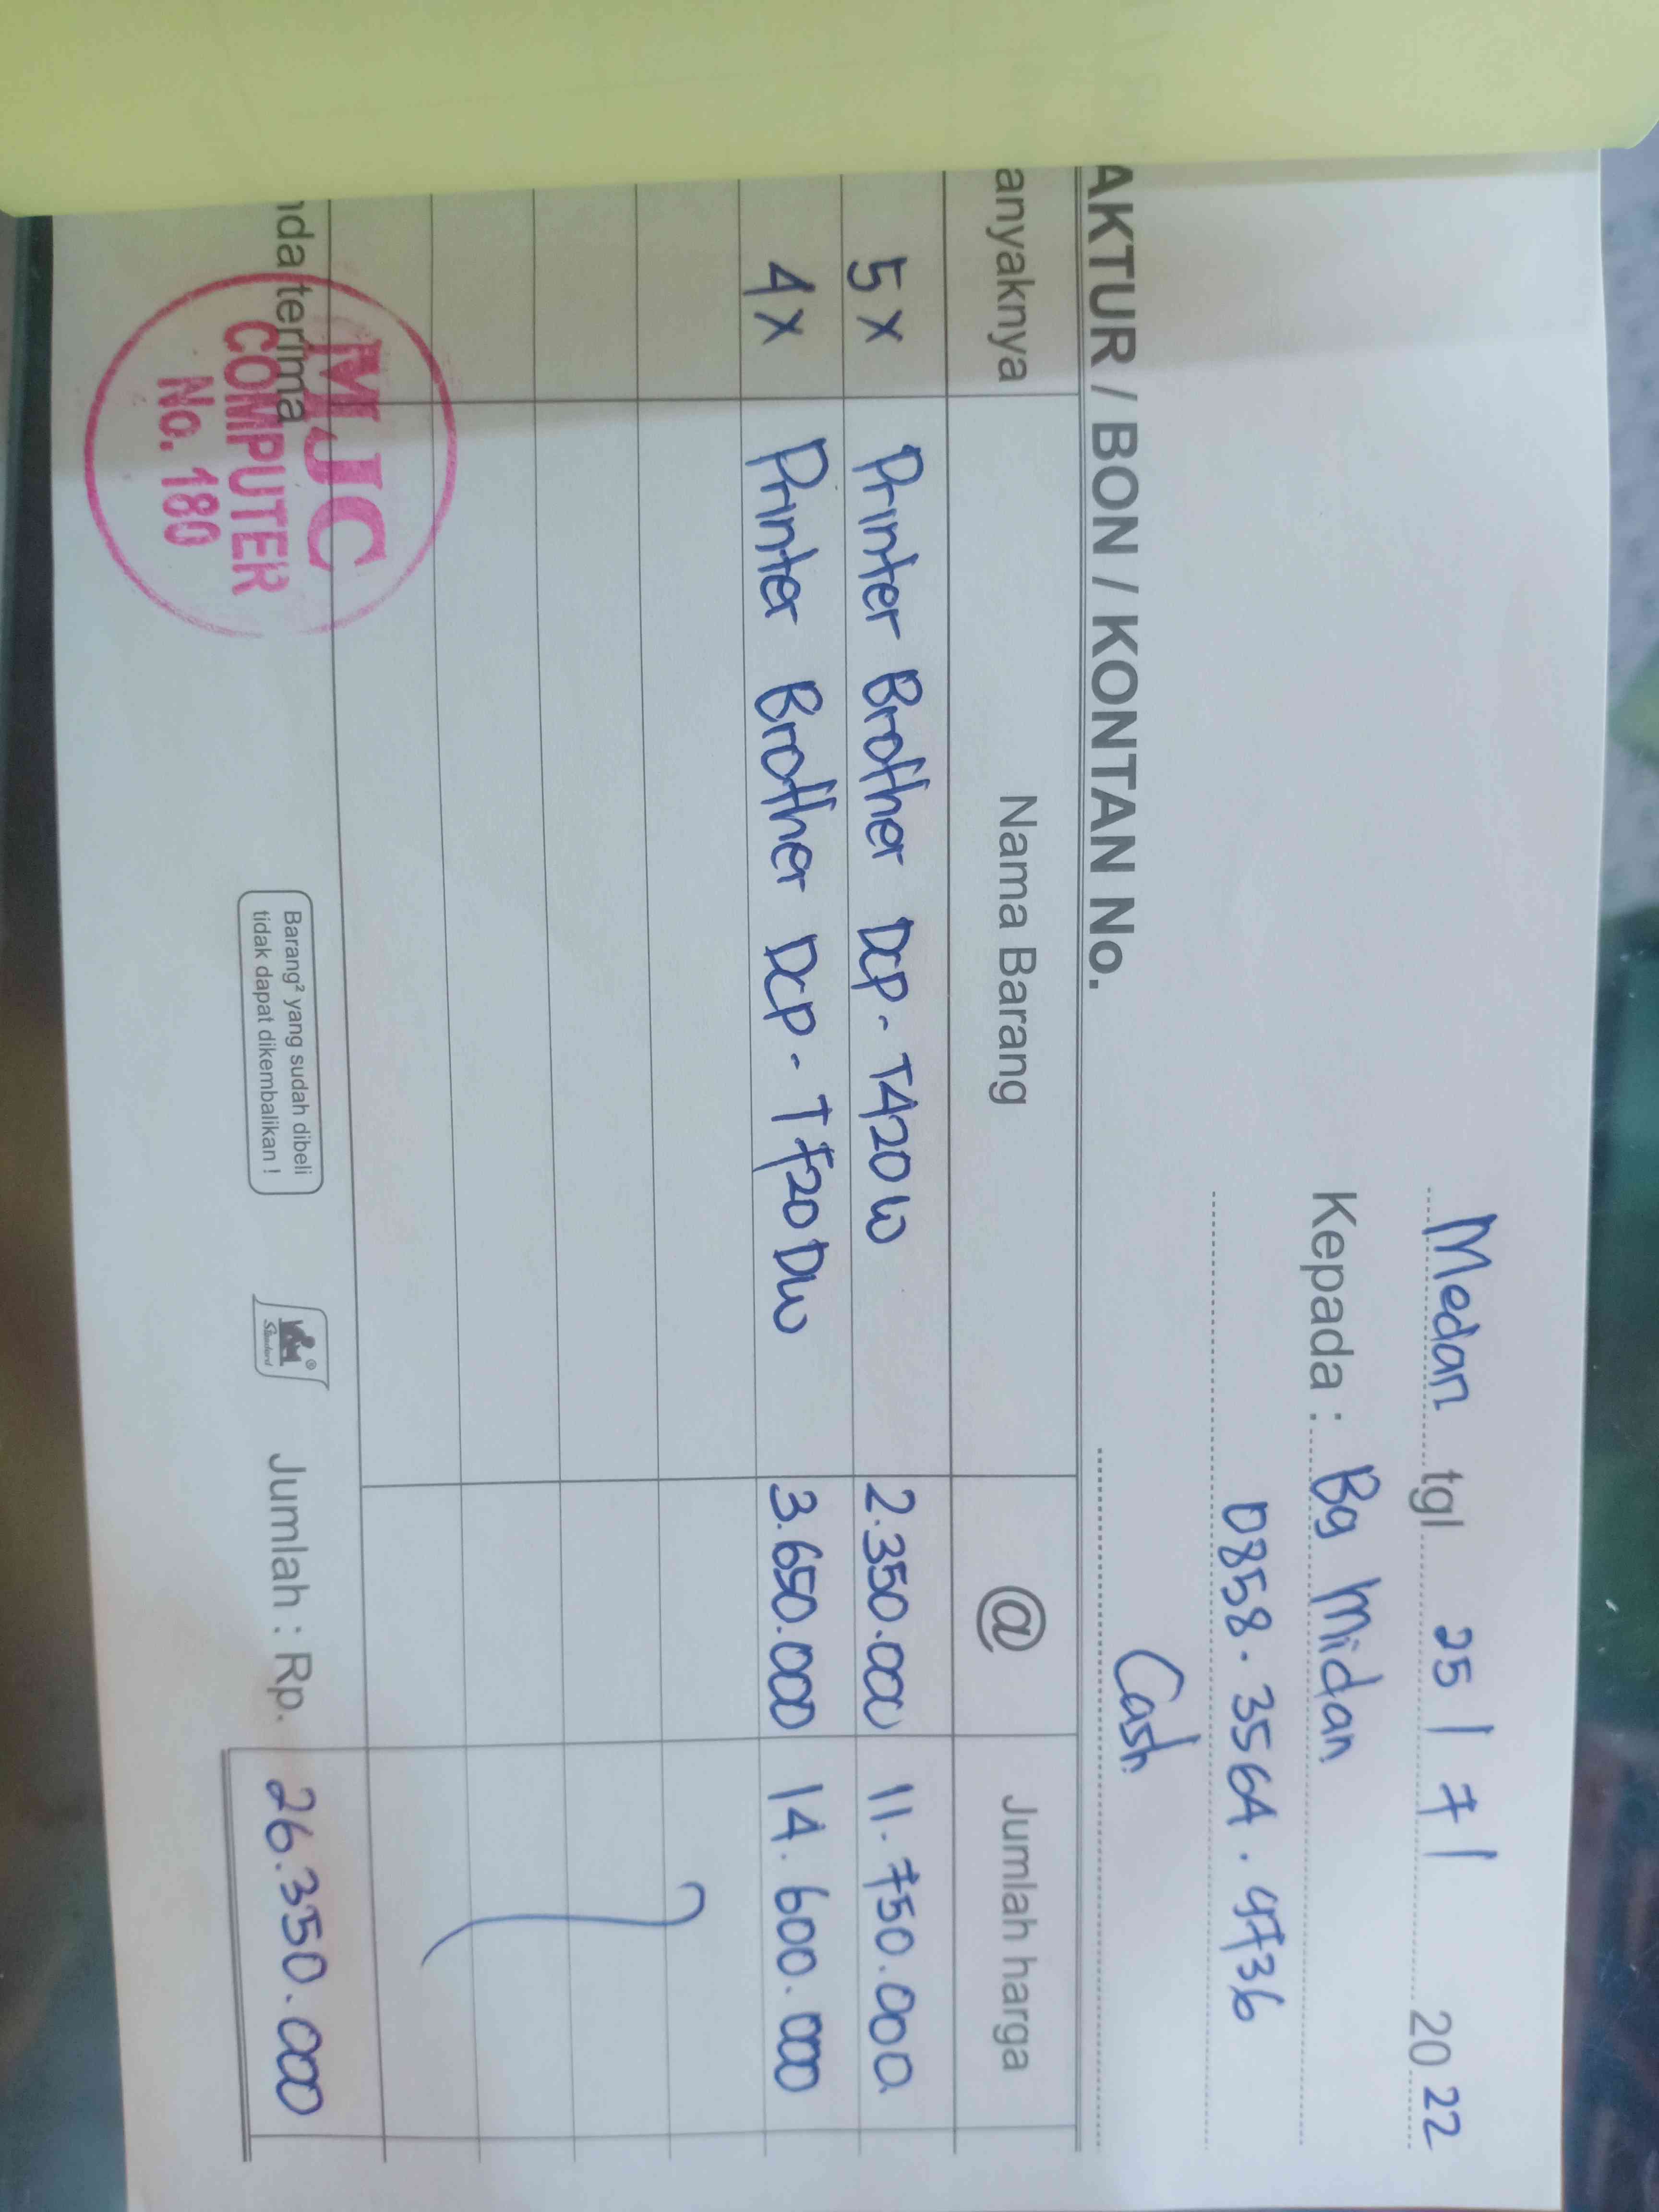 Medan tgl 25 / 7 / 2022
Kepada : Bg Midan
0858 - 3564 . 9736
Cash
AKTUR / BON / KONTAN No.
anyaknya Nama Barang @ Jumlah harga
5 x Printer Brother DCP - T420W 2.350.000 11.750.000
4 x Printer Brother DCP - T720DW 3.650.000 14.600.000
nda terima
MJC
COMPUTER
No. 180
Barang² yang sudah dibeli
tidak dapat dikembalikan !
Standard
Jumlah : Rp. 26.350.000